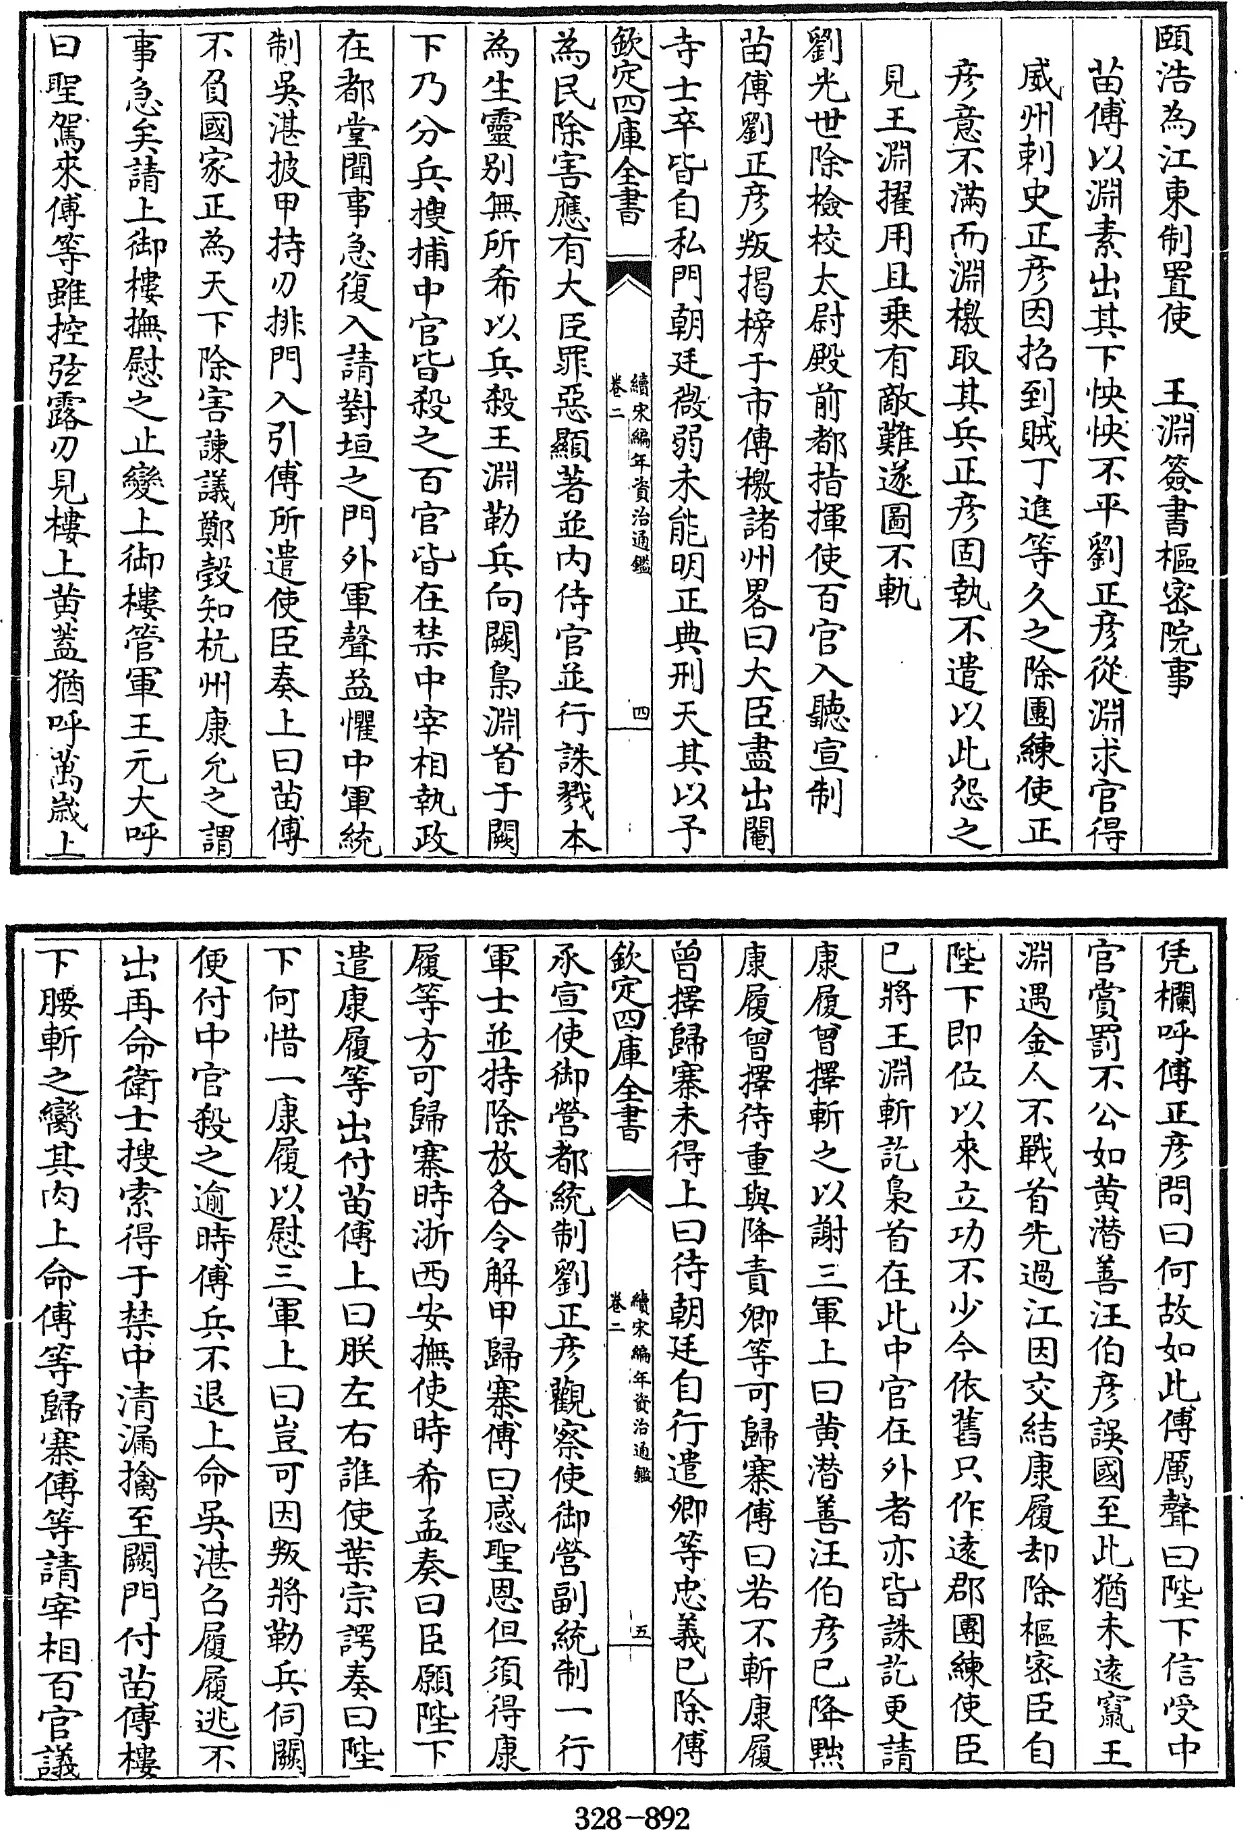 頤浩為江東制置使　王淵簽書樞密院事
苗傅以淵素出其下怏怏不平劉正彦從淵求官得
威州刺史正彦因招到賊丁進等久之除團練使正
彦意不滿而淵檄取其兵正彦固執不遣以此怨之
見王淵擢用且乗有敵難遂圖不軌
劉光世除檢校太尉殿前都指揮使百官入聽宣制
苗傅劉正彦叛揭榜于市傅檄諸州畧曰大臣盡出閹
寺士卒皆自私門朝廷微弱未能明正典刑天其以予
欽定四庫全書
續宋編年資治通鑑
卷二
四
為民除害應有大臣罪惡顯著並内侍官並行誅戮本
為生靈别無所希以兵殺王淵勒兵向闕梟淵首于闕
下乃分兵搜捕中官皆殺之百官皆在禁中宰相執政
在都堂聞事急復入請對垣之門外軍聲益懼中軍統
制吳湛披甲持刃排門入引傅所遣使臣奏上曰苗傅
不負國家正為天下除害諫議鄭瑴知杭州康允之謂
事急矣請上御樓撫慰之止變上御樓管軍王元大呼
曰聖駕來傅等雖控弦露刃見樓上黄蓋猶呼萬歳上
凭欄呼傅正彦問曰何故如此傅厲聲曰陛下信受中
官賞罰不公如黄潜善汪伯彦誤國至此猶未遠竄王
淵遇金人不戰首先過江因交結康履却除樞宻臣自
陛下即位以來立功不少今依舊只作逺郡團練使臣
已將王淵斬訖梟首在此中官在外者亦皆誅訖更請
康履曾擇斬之以謝三軍上曰黄潜善汪伯彦已降黜
康履曾擇待重與降責卿等可歸寨傅曰若不斬康履
曾擇歸寨未得上曰待朝廷自行遣卿等忠義已除傅
欽定四庫全書
續宋編年資治通鑑
卷二
五
承宣使御營都統制劉正彦觀察使御營副統制一行
軍士並持除放各令解甲歸寨傅曰感聖恩但須得康
履等方可歸寨時浙西安撫使時希孟奏曰臣願陛下
遣康履等出付苗傅上曰朕左右誰使葉宗諤奏曰陛
下何惜一康履以慰三軍上曰豈可因叛將勒兵伺闕
便付中官殺之逾時傅兵不退上命吳湛召履履逃不
出再命衛士搜索得于禁中清漏擒至闕門付苗傅樓
下腰斬之臠其肉上命傅等歸寨傅等請宰相百官議
328-892